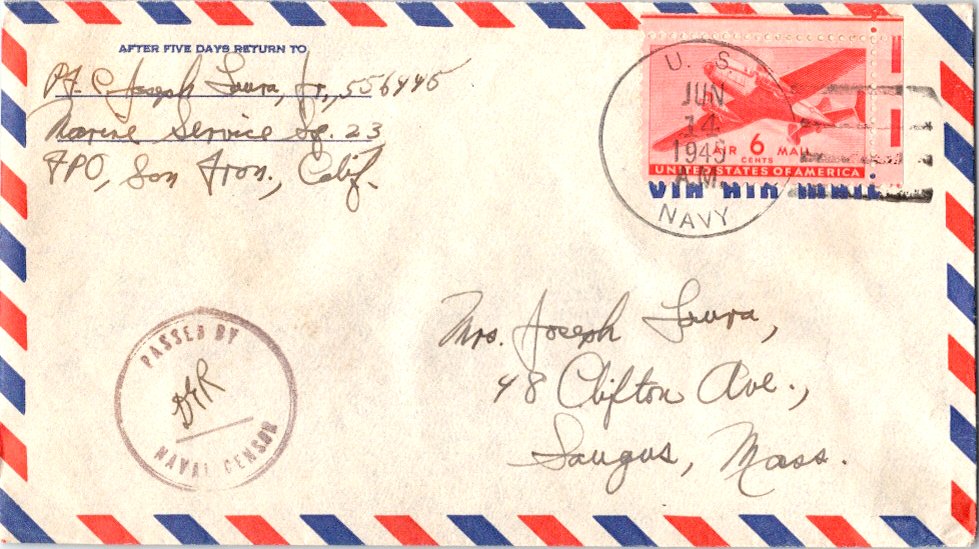 AFTER FIVE DAYS RETURN TO
Pf. C. Joseph Laura, Jr., 556445
Marine Service Sq. 23
FPO, San Fran., Calif.
U. S.
JUN
14
1945
A.M.
NAVY
AIR 6 MAIL
CENTS
UNITED STATES OF AMERICA
VIA AIR MAIL
PASSED BY
NAVAL CENSOR
Mrs. Joseph Laura,
48 Clifton Ave.,
Saugus, Mass.